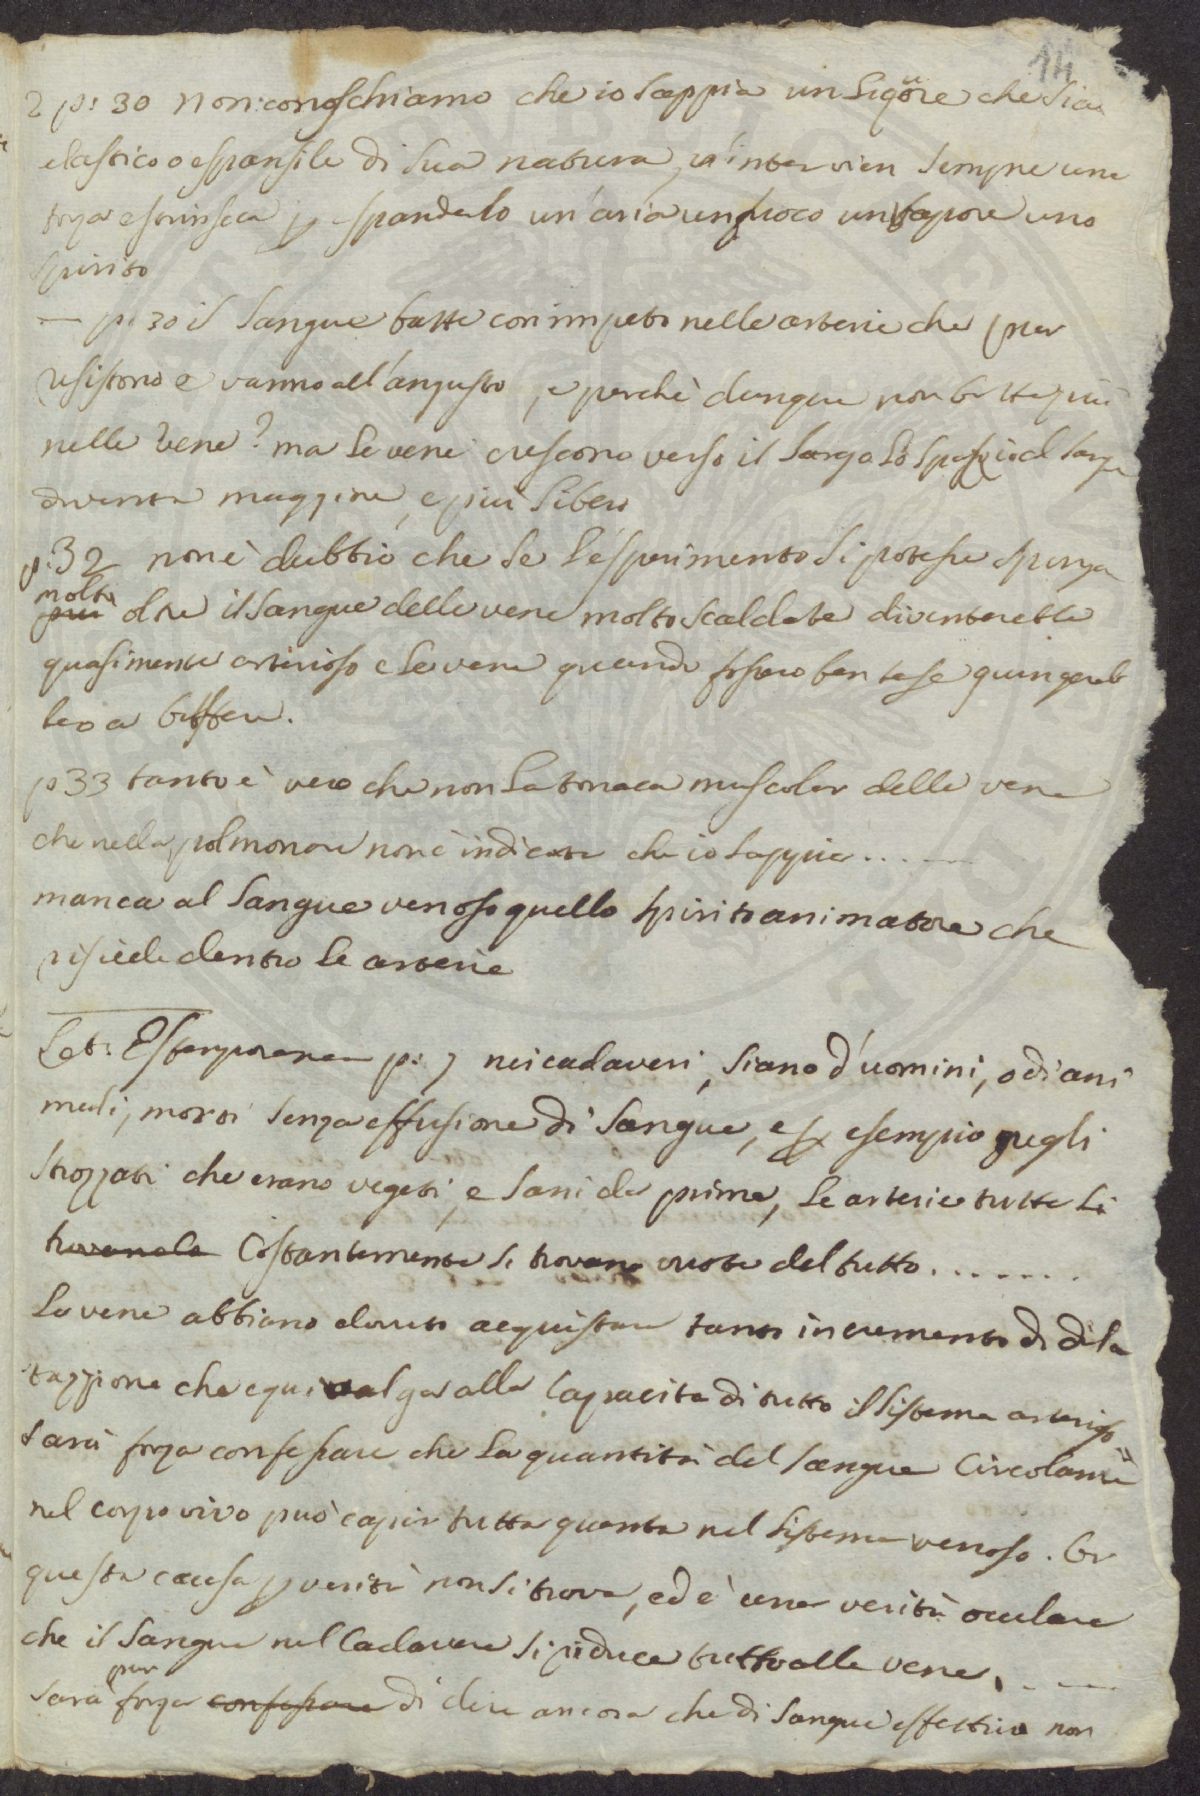 14
2 p: 30 Non conoschiamo che io sappia un liquore che sia
elastico o espansile di sua natura, v'intervien sempre una
forza estrinseca p espanderlo un'aria un fuoco un vapore uno
spirito
— p: 30 il sangue batte con impeto nelle arterie che
resistono e vanno all'angusto, e perchè dunque non batte più
nelle vene? ma le vene crescono verso il largo lo spazio del sangue
diventa maggiore, e più libero
p: 32 non è dubbio che se l'esperimento si potesse spinger
molto
più oltre il sangue delle vene molto scaldate diventerebbe
quasimente arterioso e le vene quando fossero ben tese giungereb
bero a batter.
p 33 tanto è vero che non la tonaca muscolar delle vene
che nella polmonare non è indicata che io sappia.....
manca al sangue venoso quello spirito animatore che
risiede dentro le arterie
Let: Estemporanea p: 7 nei cadaveri, siano d'uomini, o di ani
mali, morti senza effusione di sangue, e p esempio negli
strozzati che erano vegeti, e sani da prima, le arterie tutte si
trovano Costantemente si trovano vuote del tutto.......
le vene abbiano dovuto acquistare tanto incremento di dila
tazzione che equivalga alla capacità di tutto il sistema arterioso
sarà forza confessare che la quantità del sangue Circolante
nel corpo vivo può capir tutta quanta nel sistema venoso. Or
questa causa p verità non si trova, ed è una verità oculare
che il sangue nel Cadavere si riduce tutto alle vene.....
pur
sarà forza confessare di dire ancora che di sangue effettivo non